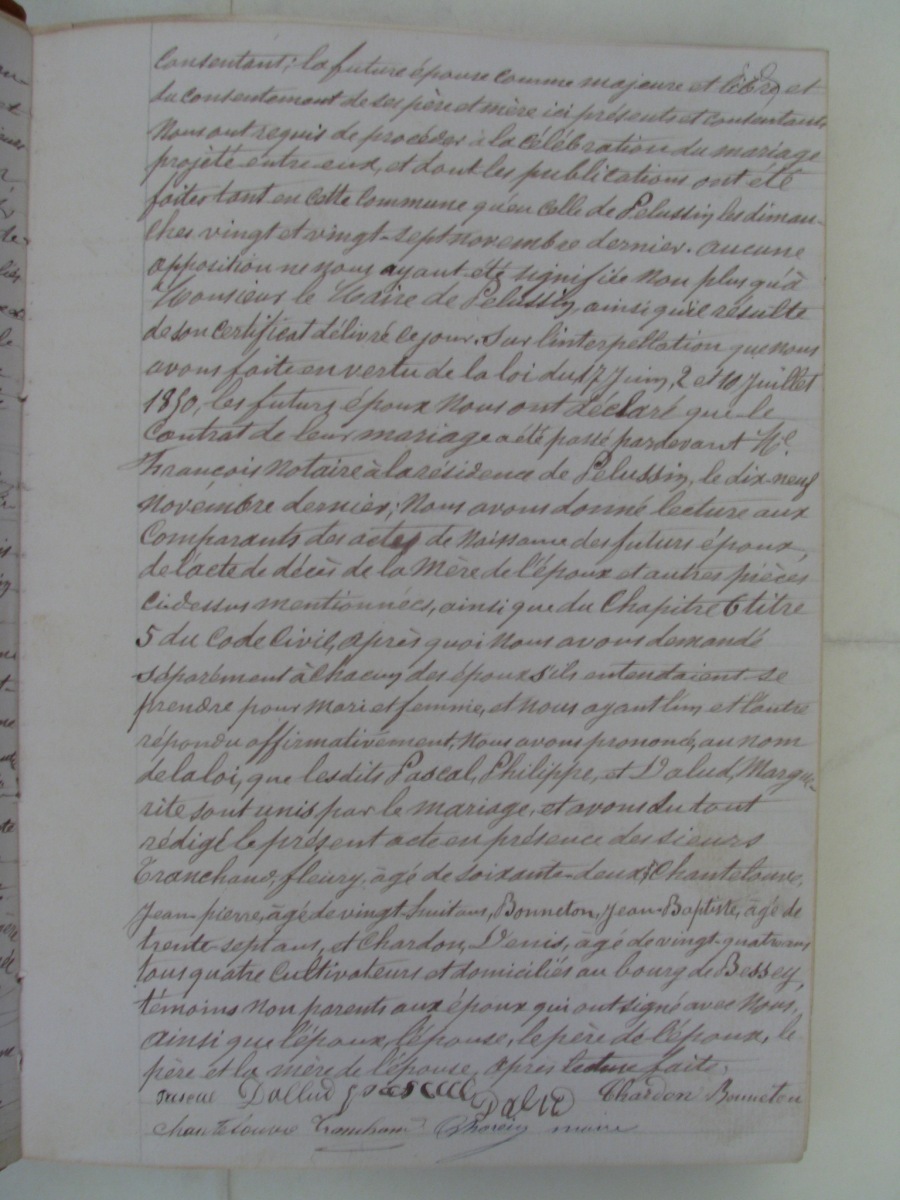 consentant; la future épouse comme majeure et libre, et
du consentement de ses père et mère ici présents et consentants
Nous ont requis de procéder à la célébration du mariage
projeté entre eux, et dont les publications ont été
faites tant en cette commune qu'en celle de Pelussin, les diman-
ches vingt et vingt-sept novembre dernier. aucune
opposition ne nous ayant été signifiée non plus qu'à
Monsieur le Maire de Pelussin, ainsi qu'il résulte
de son certificat délivré ce jour. Sur l'interpellation que nous
avons faite en vertu de la loi du 17 Juin, 2 et 10 Juillet
1850, les futurs époux Nous ont déclaré que le
Contrat de leur mariage a été passé pardevant Me
François Notaire à la résidence de Pelussin, le dix-neuf
Novembre dernier; Nous avons donné lecture aux
Comparants des actes de Naissance des futurs époux,
de l'acte de décès de la Mère de l'époux et autres pièces
ci-dessus mentionnées, ainsi que du Chapitre 6 titre
5 du Code Civil, après quoi Nous avons demandé
séparément à chacun des époux s'ils entendaient se
prendre pour Mari et femme, et Nous ayant l'un et l'autre
répondu affirmativement, Nous avons prononcé, au nom
de la loi, que lesdits Pascal, Philippe, et Dalud, Margue-
rite sont unis par le mariage, et avons du tout
rédigé le présent acte en présence des sieurs
Tranchand, fleury, âgé de soixante-deux, Chantelouve,
Jean-pierre, âgé de vingt-huit ans, Bonneton, Jean-Baptiste, âgé de
trente-sept ans, et Chardon, Denis, âgé de vingt-quatre ans
tous quatre Cultivateurs et domiciliés au bourg de Bessey,
témoins Non parents aux époux qui ont signé avec Nous,
ainsi que l'époux, l'épouse, le père de l'époux, le
père et la mère de l'épouse, après lecture faite.
Dallud Chardon Bonneton
Chantelouve Tranchand maire